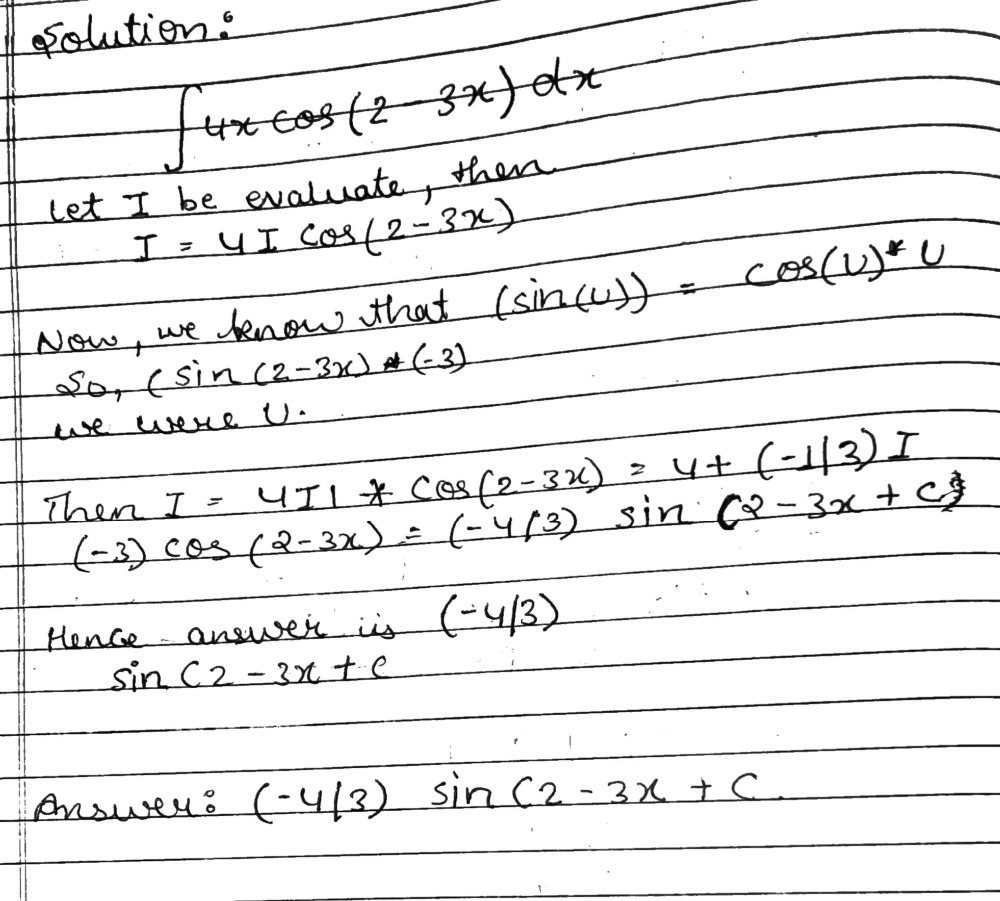 Solution:
∫4x cos(2-3x) dx
Let I be evaluate, then
I = 4I cos(2-3x)
Now, we know that (sin(u)) = cos(U)* U
So, (sin(2-3x) * (-3)
we were U.
Then I = 4I1 * cos(2-3x) = 4+ (-1/3) I
(-3) cos (2-3x) = (-4/3) sin (2-3x + C)
Hence answer is (-4/3)
sin (2-3x + C
Answer: (-4/3) sin (2-3x + C.